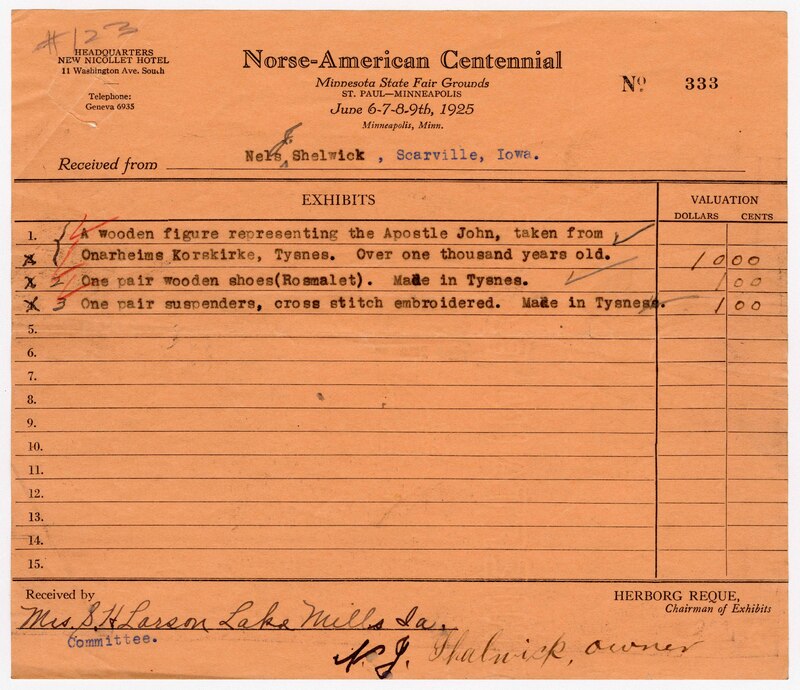 #123
HEADQUARTERS
NEW NICOLLET HOTEL
11 Washington Ave. South
Telephone:
Geneva 6935
Norse-American Centennial
Minnesota State Fair Grounds
ST. PAUL—MINNEAPOLIS
June 6-7-8-9th, 1925
Minneapolis, Minn.
Nº 333
J.
Received from Nels Shelwick , Scarville, Iowa.
EXHIBITS
VALUATION
DOLLARS CENTS
1. A wooden figure representing the Apostle John, taken from
Onarheims Korskirke, Tysnes. Over one thousand years old. 10 00
2 One pair wooden shoes(Rosmalet). Made in Tysnes. 1 00
3 One pair suspenders, cross stitch embroidered. Made in Tysness. 1 00
5.
6.
7.
8.
9.
10.
11.
12.
13.
14.
15.
Received by
Mrs. B H Larson Lake Mills Ia.
Committee.
HERBORG REQUE,
Chairman of Exhibits
N. J. Shelwick, owner